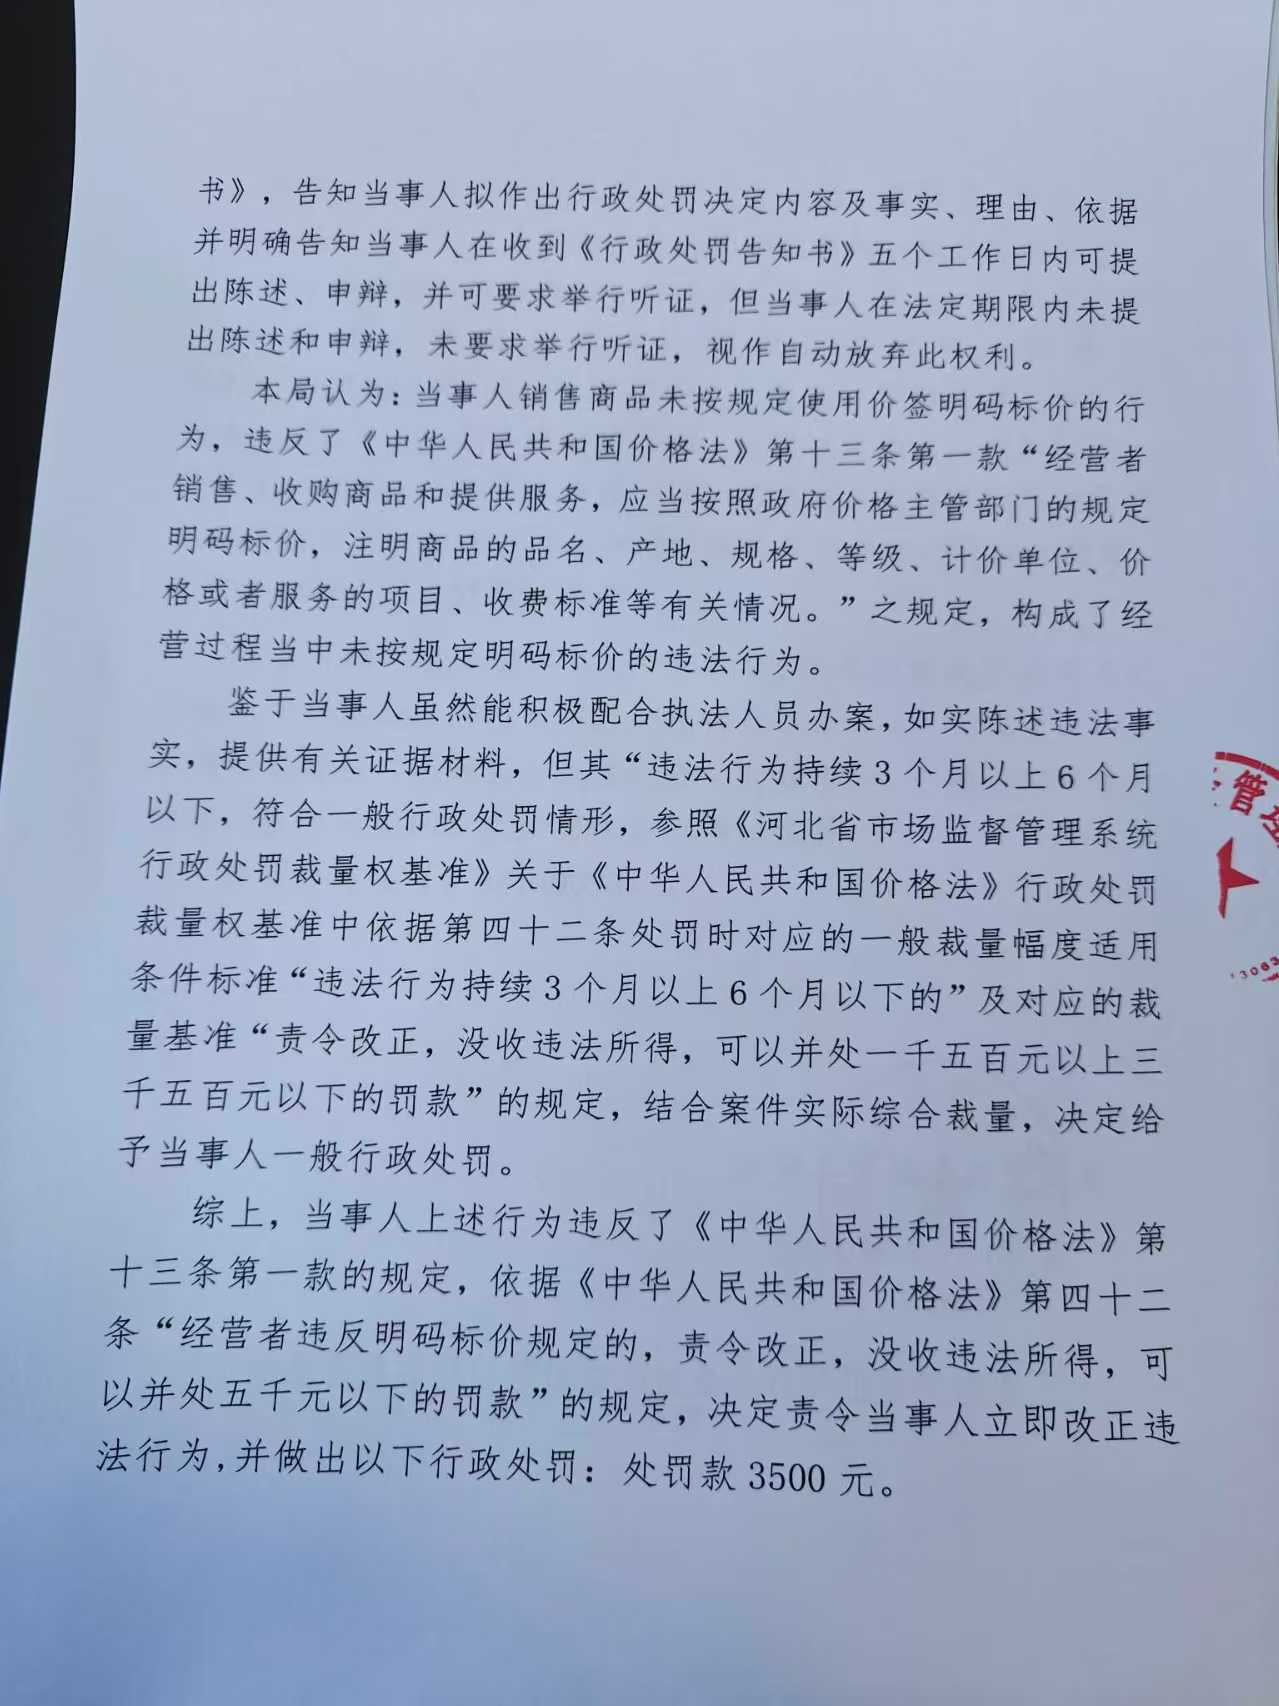 书》，告知当事人拟作出行政处罚决定内容及事实、理由、依据
并明确告知当事人在收到《行政处罚告知书》五个工作日内可提
出陈述、申辩，并可要求举行听证，但当事人在法定期限内未提
出陈述和申辩，未要求举行听证，视作自动放弃此权利。
本局认为：当事人销售商品未按规定使用价签明码标价的行
为，违反了《中华人民共和国价格法》第十三条第一款“经营者
销售、收购商品和提供服务，应当按照政府价格主管部门的规定
明码标价，注明商品的品名、产地、规格、等级、计价单位、价
格或者服务的项目、收费标准等有关情况。”之规定，构成了经
营过程当中未按规定明码标价的违法行为。
鉴于当事人虽然能积极配合执法人员办案，如实陈述违法事
实，提供有关证据材料，但其“违法行为持续3个月以上6个月
以下，符合一般行政处罚情形，参照《河北省市场监督管理系统
行政处罚裁量权基准》关于《中华人民共和国价格法》行政处罚
裁量权基准中依据第四十二条处罚时对应的一般裁量幅度适用
条件标准“违法行为持续3个月以上6个月以下的”及对应的裁
量基准“责令改正，没收违法所得，可以并处一千五百元以上三
千五百元以下的罚款”的规定，结合案件实际综合裁量，决定给
予当事人一般行政处罚。
综上，当事人上述行为违反了《中华人民共和国价格法》第
十三条第一款的规定，依据《中华人民共和国价格法》第四十二
条“经营者违反明码标价规定的，责令改正，没收违法所得，可
以并处五千元以下的罚款”的规定，决定责令当事人立即改正违
法行为,并做出以下行政处罚：处罚款3500元。
管
13063